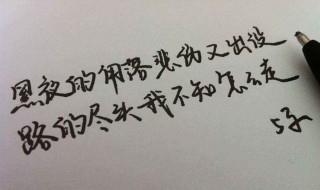 黑放的角落悲伤又出没
路的尽头我不知怎么走